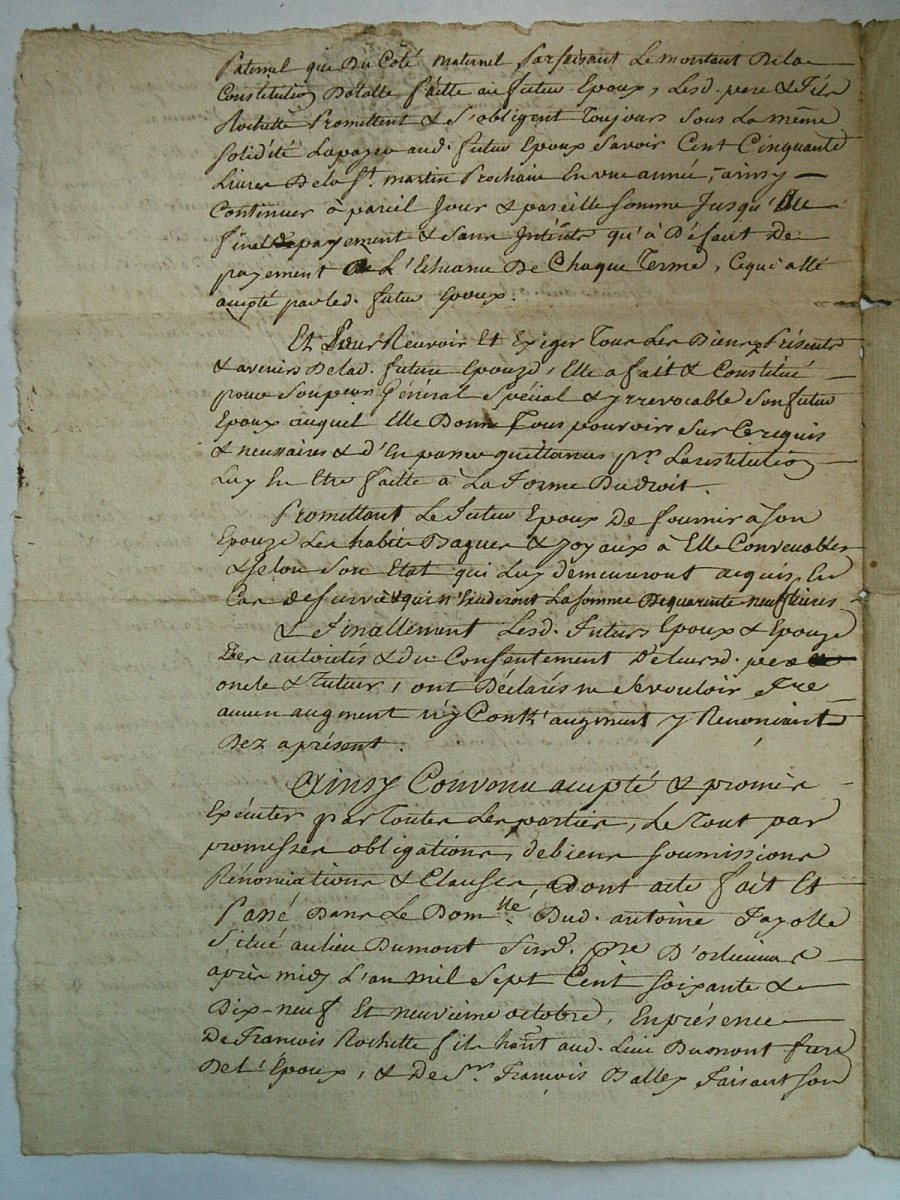 Paternel que Du Côté maternel Parfaisant Le montant Dela
Constitution Dotalle faitte au futur Epoux, Lesd. pere & fils
Rochette Promettent & s'obligent Toujours sous La même
solidité Lapayer aud. futur Epoux Savoir Cent Cinquante
Livres Dela St. martin Prochain En une année, ainsy
Continuer à pareil Jour & pareille somme Jusqu'
final payement & sans Intérêts qu'à Défaut De
payement L'Echeance De Chaque Terme, Cequi a été
accepté par led. futur Epoux.
Et Pour Recevoir Et Exiger Tous Les Biens présents
& avenirs Delad. future Epouze, Elle a fait & Constitué
pour son Général Spécial & yrrevocable Son futur
Epoux auquel Elle Donne Tous pouvoirs Sur Ce requis
& necessaires & d'En passer quittances pr. La restitution
Luy En Etre faitte à La Forme Du droit.
Promettant Le futur Epoux De fournir à Son
Epouze Les habits Bagues & Joyaux à Elle Convenables
& selon Son Etat qui Luy demeureront acquis En
Cas de survie & qui n'Exederont La somme De quarante neuf Livres
& Finallement Lesd. Futurs Epoux & Epouze
Des autorités & du Consentement De leursd. pere
oncle & Tuteur, ont Déclarés ne Se vouloir Fre
aucun augment n'y Contr'augment y Renonciant
Dez aprésent.
Ainsy Convenu accepté & promis
Exécuter par Toutes Les parties, Le Tout par
promesses obligations, de biens soumissions
Rénonciations & Clauses, Dont acte fait Et
Passé Dans Le Domlle Dud. antoine Fayolle
Situé au lieu Dumont Susd. psse D'orlienas
après midy L'an mil Sept Cent soixante &
Dix-neuf Et neuvieme octobre, En présence
De François Rochette fils hant aud. Lieu Dumont frere
De L'Epoux, & De Sr. François Ballex Faisant son